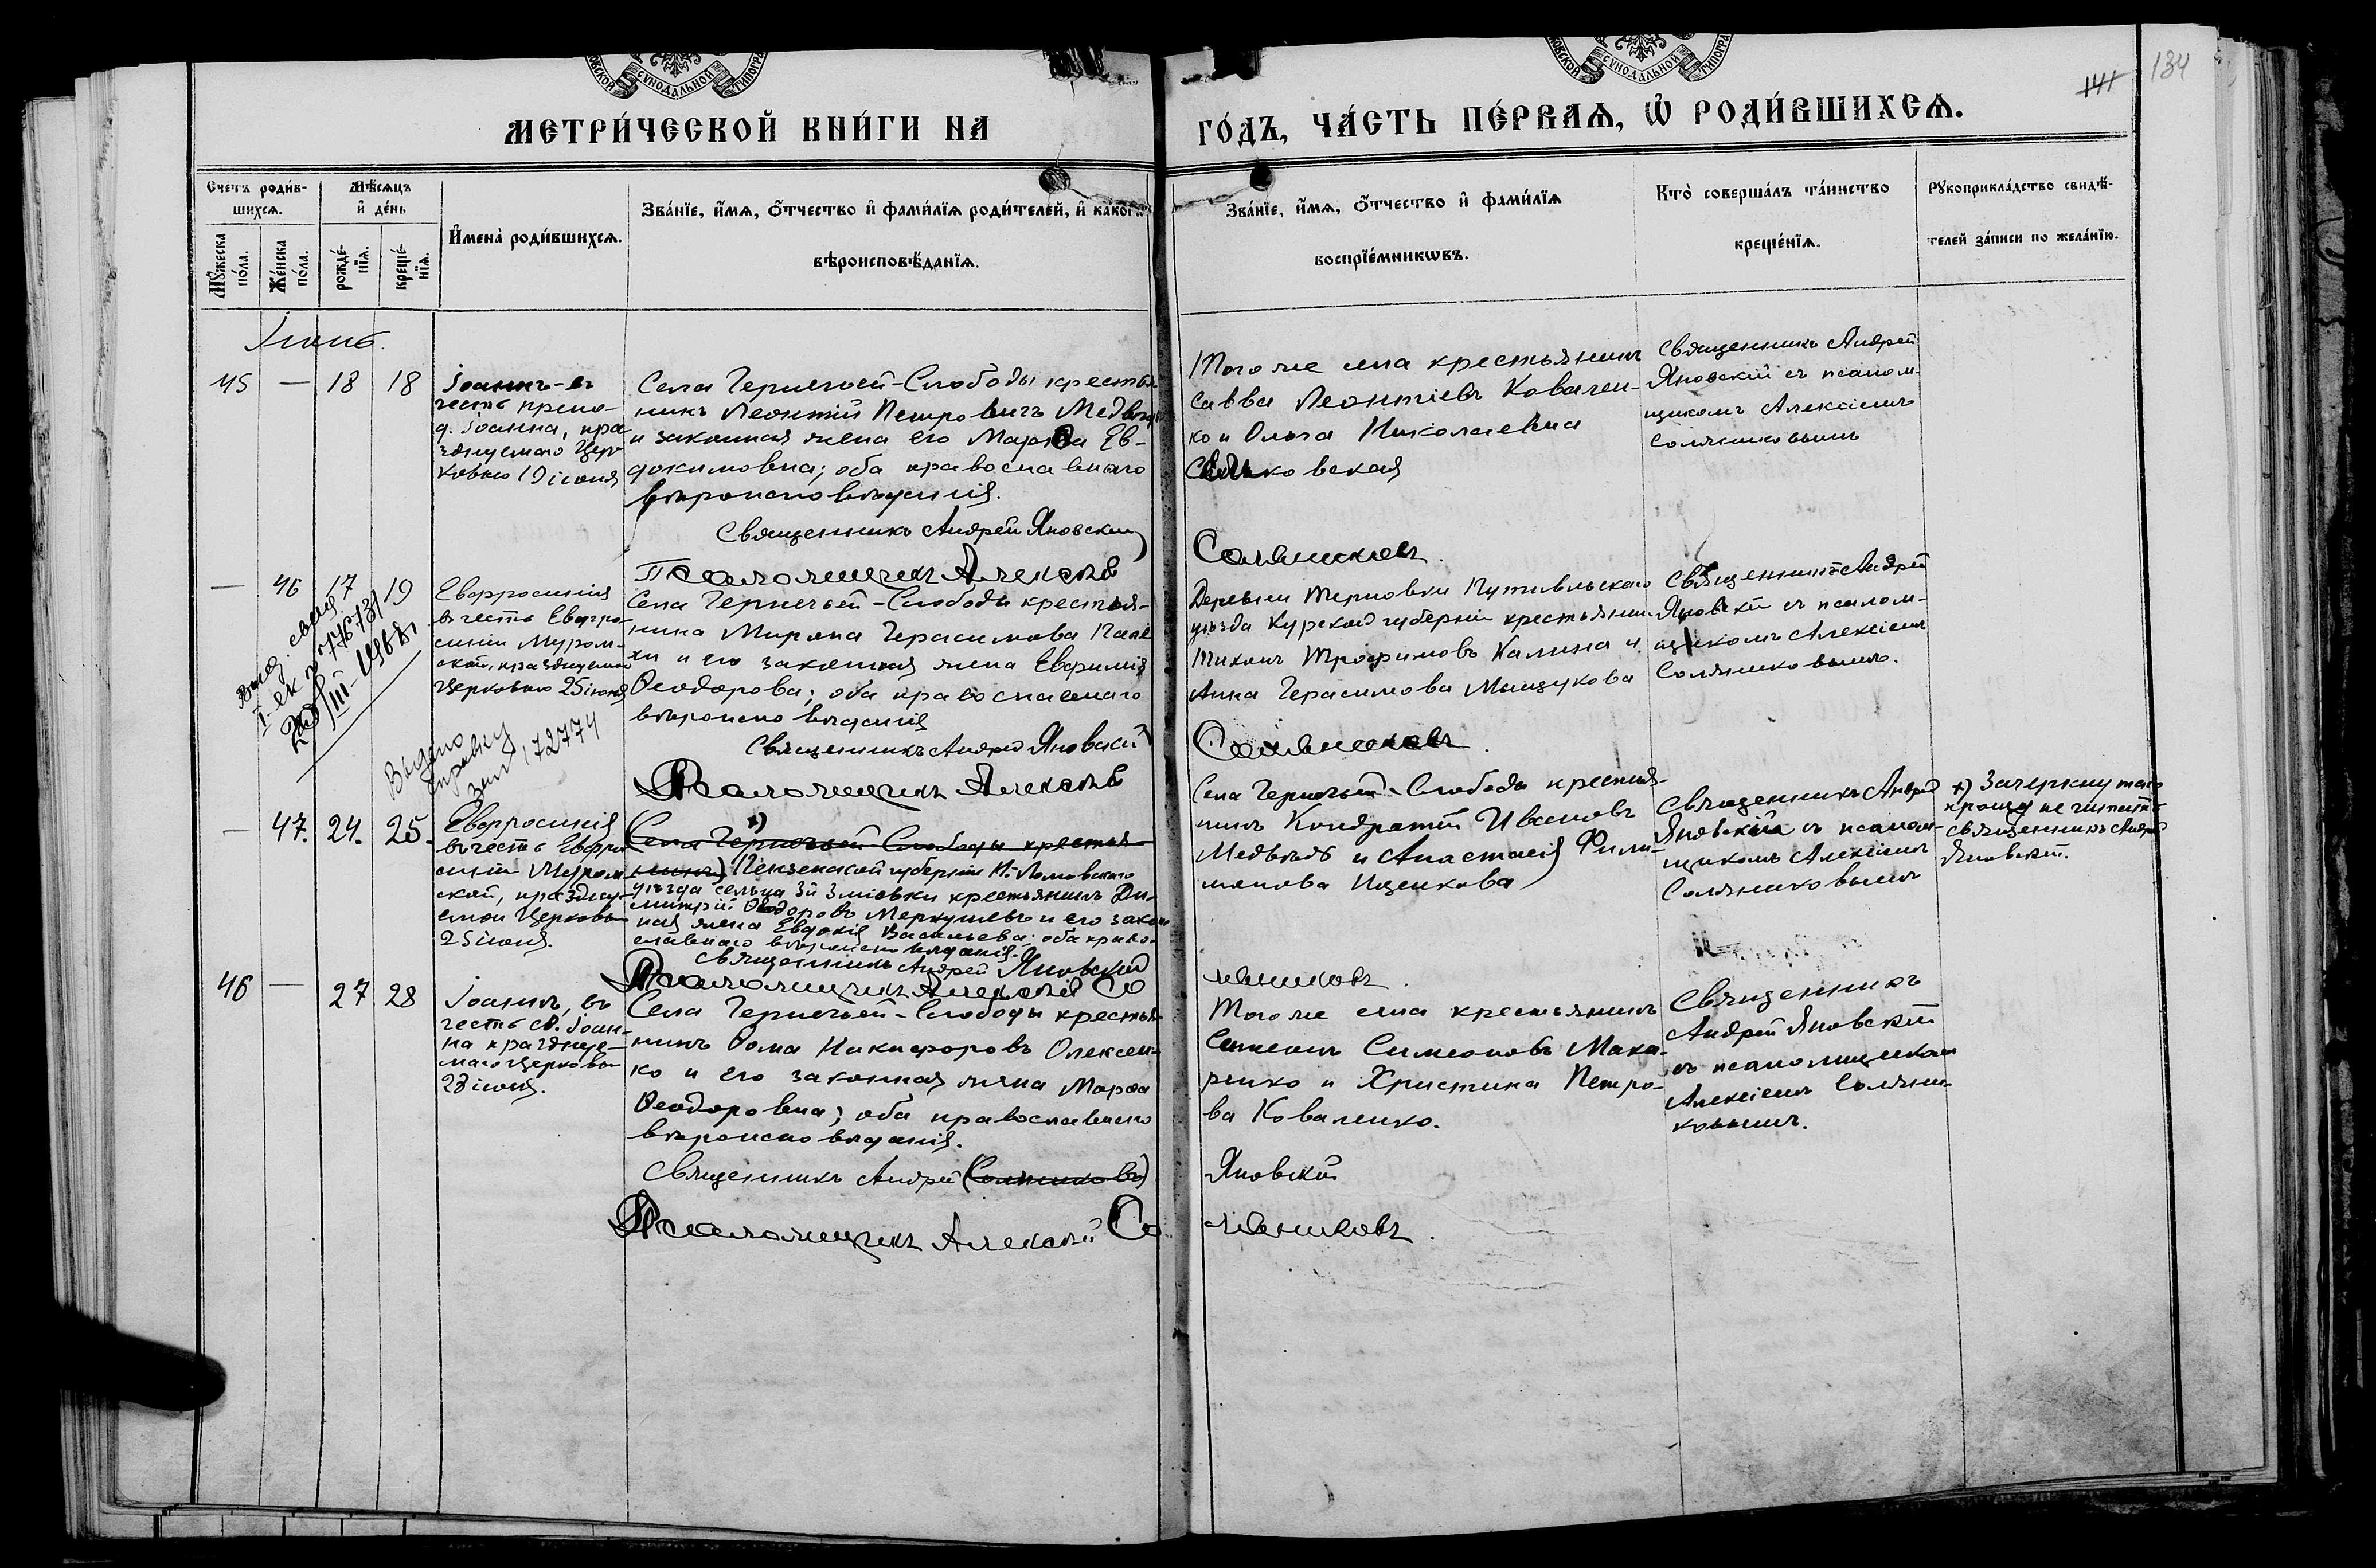 СѴНОДАЛЬНОЙ
СѴНОДАЛЬНОЙ
134
141
МЕТРИ́ЧЕСКОЙ КНИ́ГИ НА
ГО́ДЪ, ЧА́СТЬ ПЕ́РВАѦ, Ѡ҆ РОДИ́ВШИХСѦ.
Счетъ роди́в-
шихсѧ.
Мꙋ́жеска по́ла.
Же́нска по́ла.
Мѣ́сѧцъ
и҆ де́нь
рожде́-
нїѧ.
креще́-
нїѧ.
И҆мена̀ роди́вшихсѧ.
Зва́нїе, и҆́мѧ, ѻ҆́тчество и҆ фами́лїѧ роди́телей, и҆ како́гѡ
вѣроисповѣ́данїѧ.
Зва́нїе, и҆́мѧ, ѻ҆́тчество и҆ фами́лїѧ
воспрїе́мникѡвъ.
Кто̀ соверша́лъ та́инство
креще́нїѧ.
Рꙋкоприкла́дство свидѣ́-
телей за́писи по жела́нїю.
Іюнь.
45 — 18 18
Іоаннъ - въ
честь препо-
д. Іоанна, пра-
зднуемаго Цер-
ковью 19 іюня
Села Терничьей-Слободы крестья-
нинъ Леонтій Петровичъ Медвѣдь
и законная жена его Марѳа Ев-
докимовна; оба православнаго
вѣроисповѣданія.
Священникъ Андрей Яновскій
Псаломщикъ Алексѣй
Того же села крестьянинъ
Савва Леонтіевъ Ковален-
ко и Ольга Николаевна
Священникъ Андрей
Яновскій съ псалом-
щикомъ Алексіемъ
Соляниковымъ
Соляниковъ.
— 46 17 19
Евфросинія
въ честь Евфро-
синіи Муром-
ской, празднуемой
Церковью 25 іюня
Села Терничьей-Слободы крестья-
нина Мирона Герасимова
и его законная жена Евфимія
Ѳеодорова; оба православнаго
вѣроисповѣданія
Священникъ Андрей Яновскій
Псаломщикъ Алексѣй
Деревни Терновки Путивльскаго
уѣзда Курской губерніи крестьянинъ
Тихонъ Трофимовъ Калина и
Анна Герасимова Мащукова
Священникъ Андрей
Яновскій съ псалом-
щикомъ Алексіемъ
Соляниковымъ.
Соляниковъ.
Выдано
справку
172774
— 47. 24. 25.
Евфросинія
въ честь Евфро-
синіи Муром-
ской, праздну-
емой Церковью
25 іюня.
x)
(Села Терничьей Слободы крестья-
нинъ) Пензенской губерніи Н. Ломовскаго
уѣзда сельца Зміевки крестьянинъ Ди-
митрій Ѳеодоровъ Меркушевъ и его закон-
ная жена Евдокія Васильева; оба право-
славнаго вѣроисповѣданія.
Священникъ Андрей Яновскій
Псаломщикъ Алексѣй Со
Села Терничьей-Слободы крестья-
нинъ Кондратій Ивановъ
Медвѣдь и Анастасія Фили-
монова Ищенкова
Священникъ Андрей
Яновскій съ псалом-
щикомъ Алексіемъ
Соляниковымъ
x) Зачеркнутаго
прошу не читать
священникъ Андрей
Яновскій.
ляниковъ.
46 — 27 28
Іоаннъ, въ
честь св. Іоан-
на празднуе-
маго Церковью
28 іюня.
Села Терничьей-Слободы крестья-
нинъ Ѳома Никифоровъ Олексен-
ко и его законная жена Марѳа
Ѳеодоровна; оба православнаго
вѣроисповѣданія.
Священникъ Андрей (Соляниковъ)
Псаломщикъ Алексѣй Со
Того же села крестьянинъ
Симеонъ Симеоновъ Мака-
ренко и Христина Петро-
ва Коваленко.
Священникъ
Андрей Яновскій
съ псаломщикомъ
Алексіемъ Соляни-
ковымъ.
Яновскій
ляниковъ.